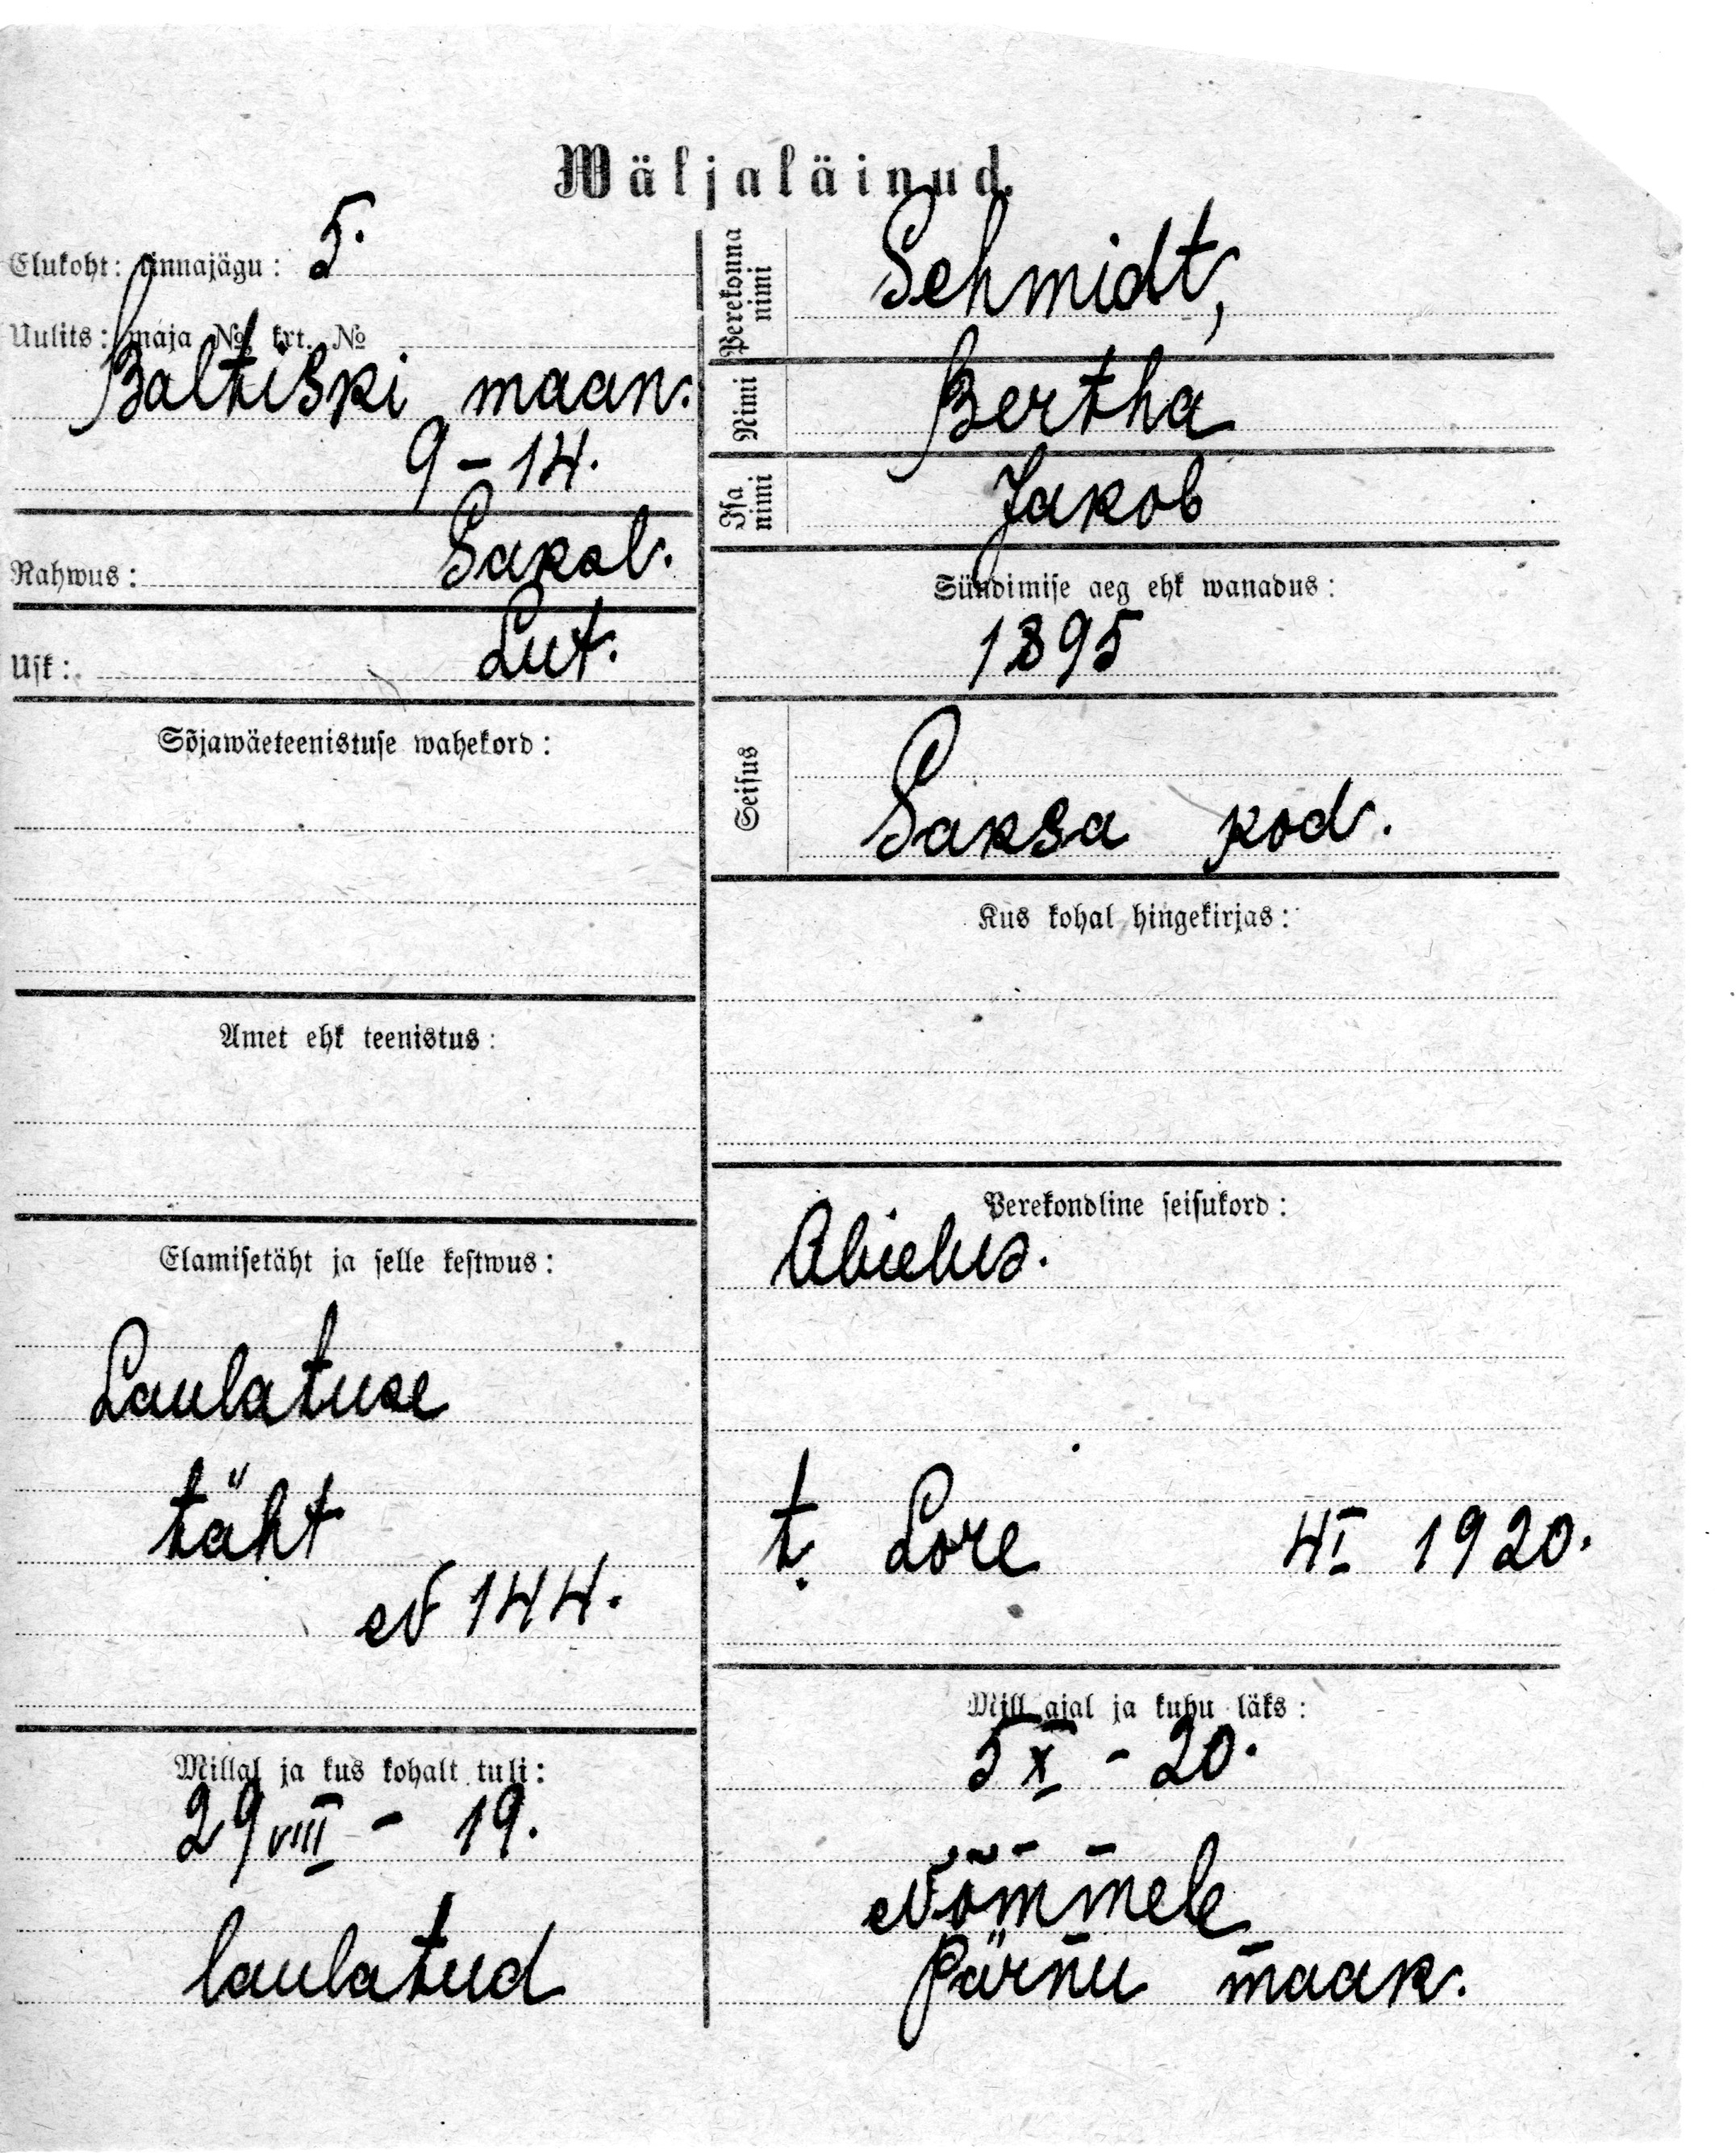 Wäljaläinud.
Elukoht: linnajägu: 5.
Uulits: maja № krt. №
Baltiski maan.
9 - 14.
Rahwus: Saksl.
Usk: Lut.
Sõjawäeteenistuse wahekord:
Amet ehk teenistus:
Elamisetäht ja selle kestwus:
Laulatuse
täht
N 144.
Millal ja kus kohalt tuli:
29 VIII - 19.
laulatud
Perekonna nimi
Schmidt,
Nimi
Bertha
Isa nimi
Jakob
Sündimise aeg ehk wanadus:
1895
Seisus
Saksa kod.
Kus kohal hingekirjas:
Perekondline seisukord:
Abielus.
t. Lore 4 I 1920.
Mill ajal ja kuhu läks:
5 X - 20.
Nõmmele
Pärnu maak.